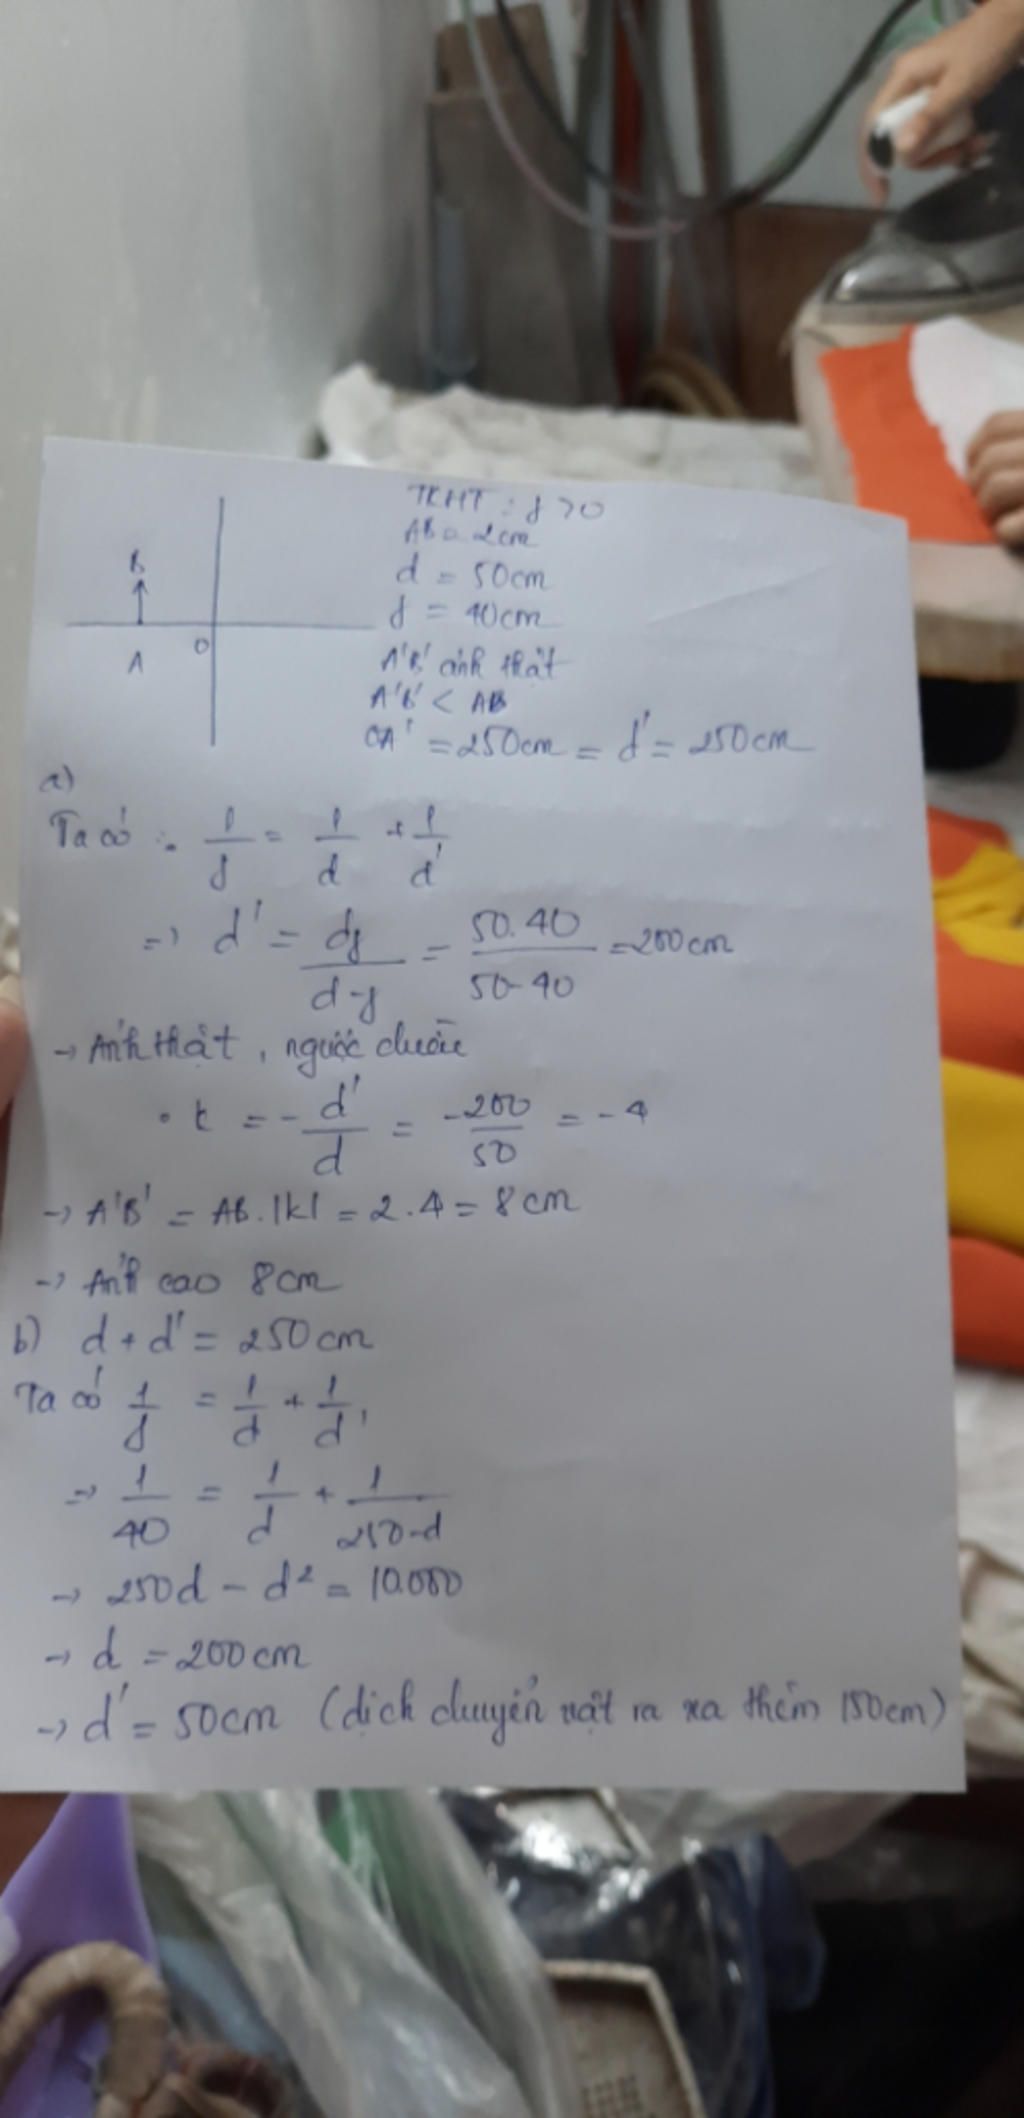 TKHT : f > 0
AB = 2cm
d = 50cm
f = 40cm
A'B' ảnh thật
A'B' < AB
OA' = 250cm = d' = 250cm
B
O
A
a)
Ta có : 1/f = 1/d + 1/d'
=> d' = df/d-f = 50.40/50-40 = 200cm
→ Ảnh thật, ngược chiều
• k = - d'/d = -200/50 = -4
→ A'B' = AB.|k| = 2.4 = 8cm
→ Ảnh cao 8cm
b) d + d' = 250cm
Ta có 1/f = 1/d + 1/d'
=> 1/40 = 1/d + 1/250-d
→ 250d - d² = 10.000
→ d = 200cm
→ d' = 50cm (dịch chuyển vật ra xa thêm 150cm)